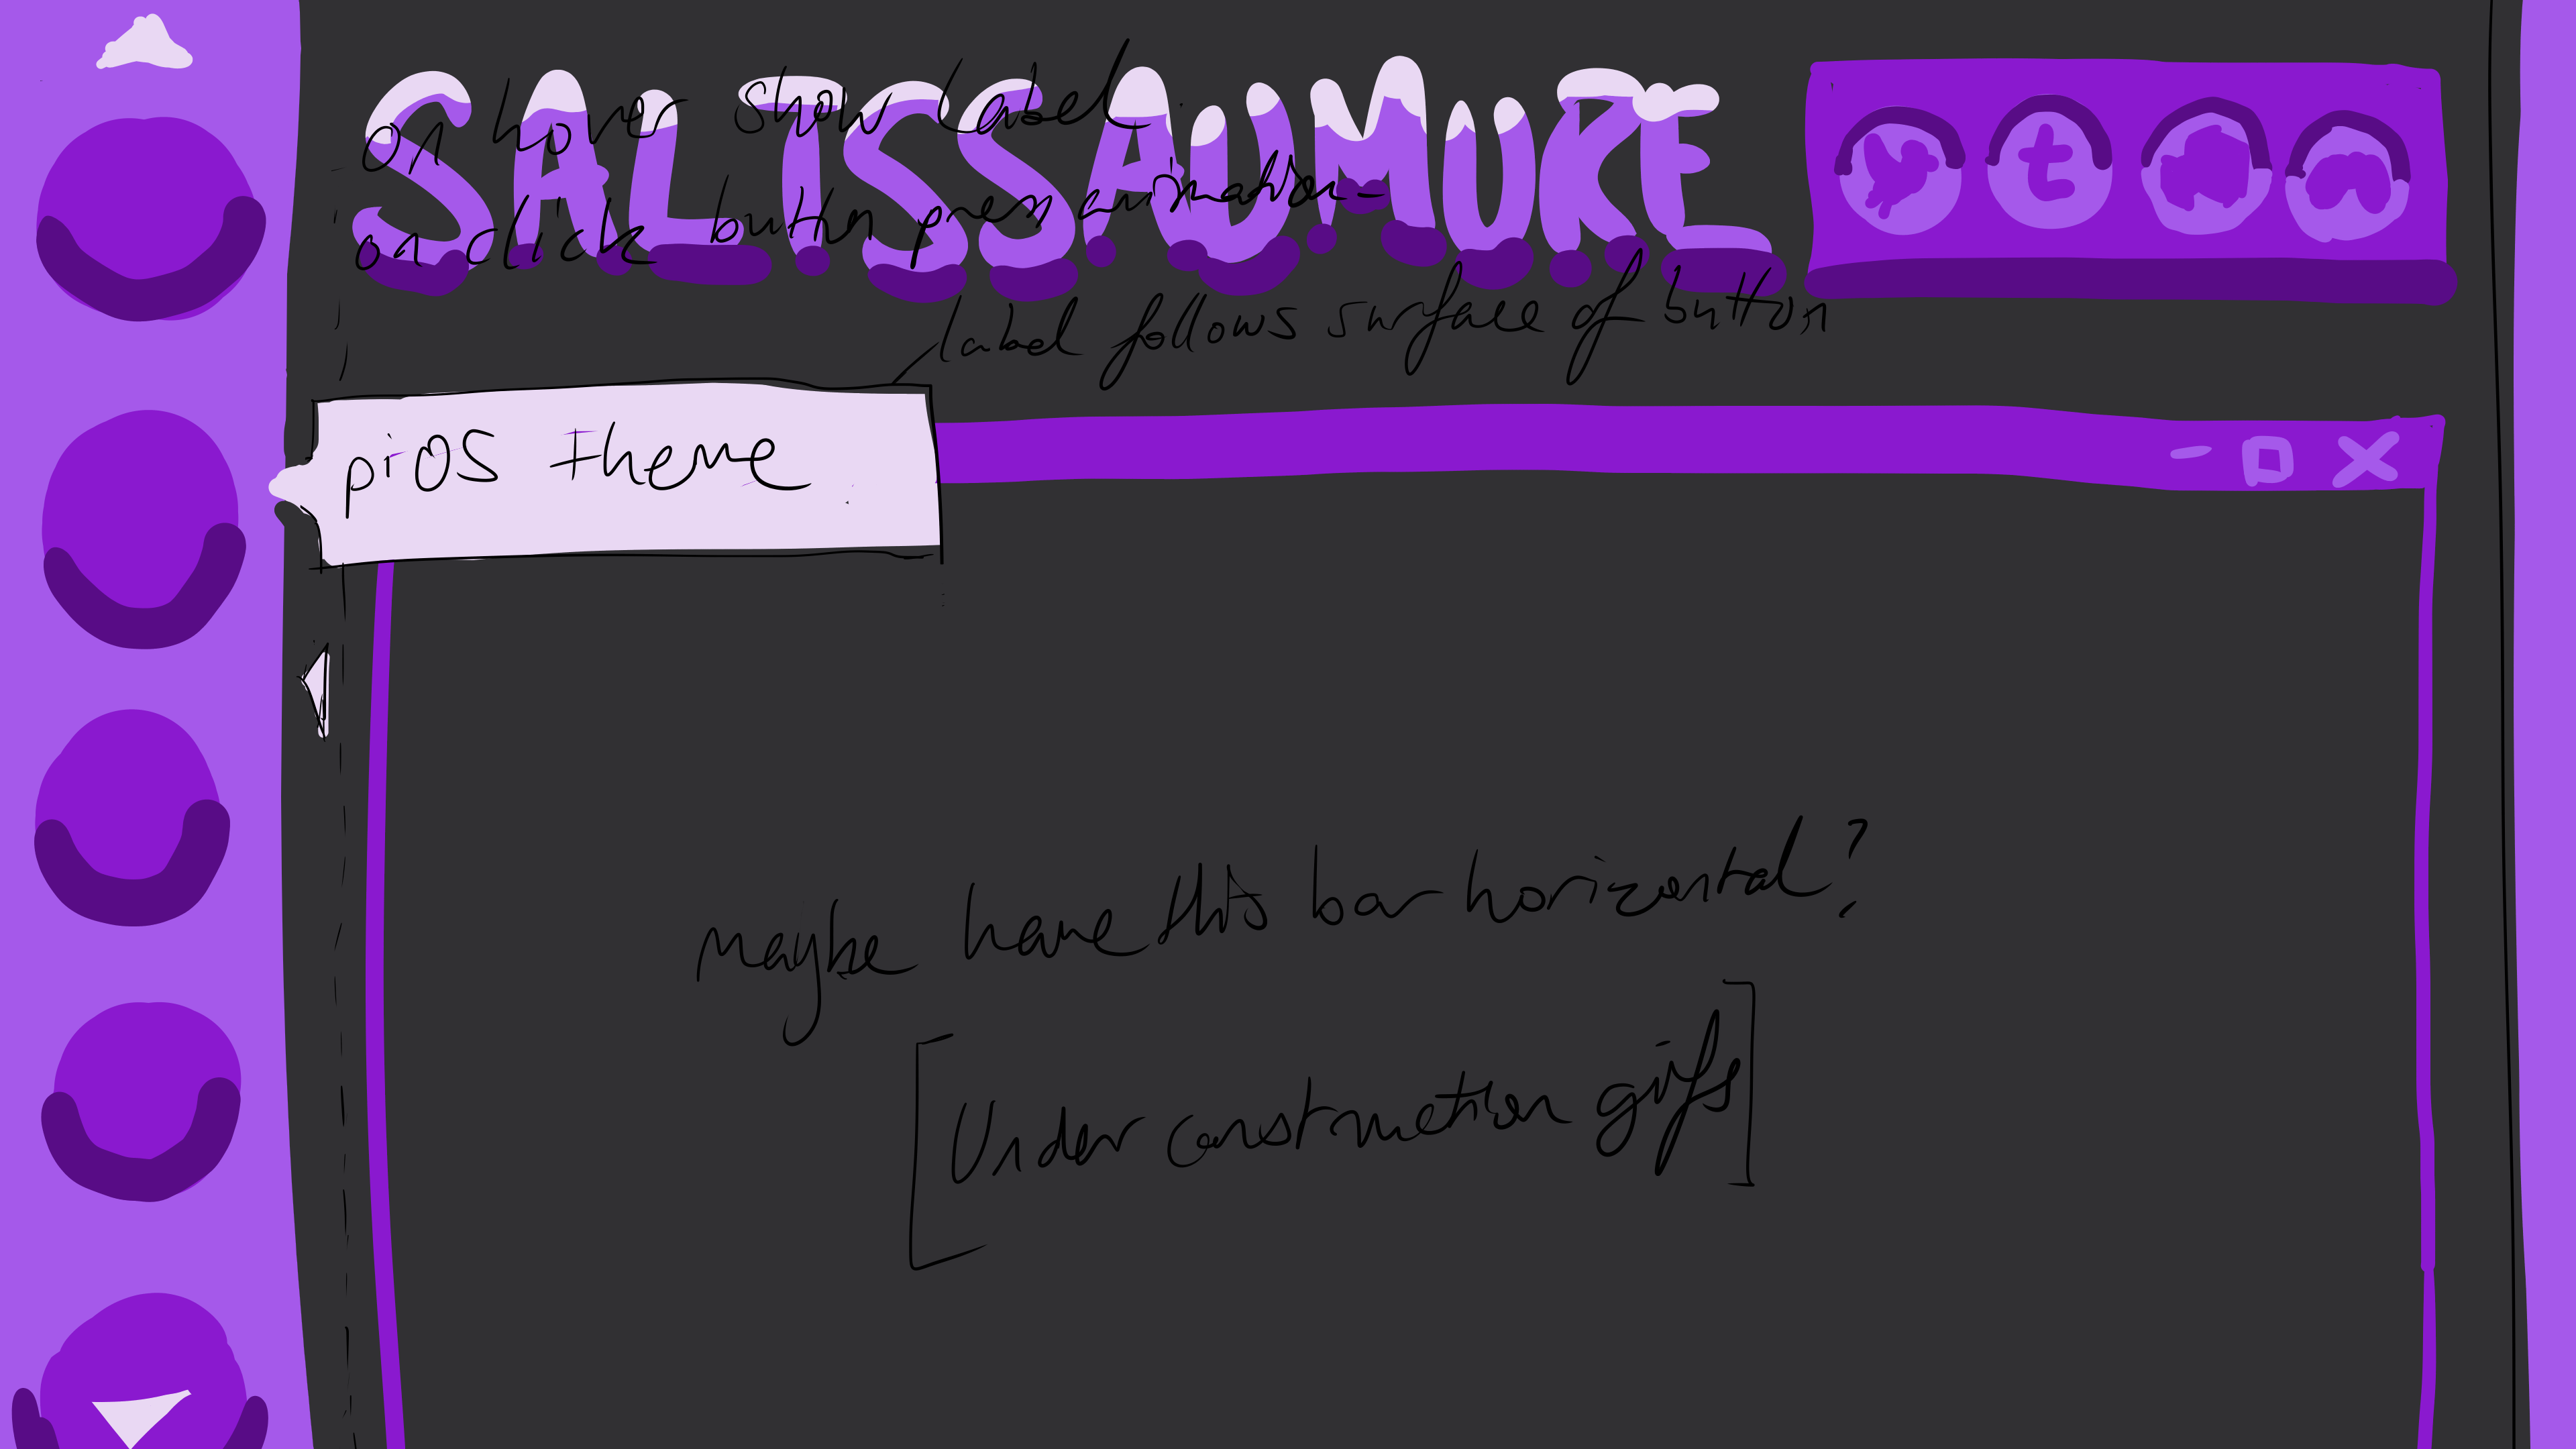 SALTSSAUMURE
on hover show label
on click button press animation
t
label follows surface of button
piOS theme
maybe have this bar horizontal?
[Under construction gifs]